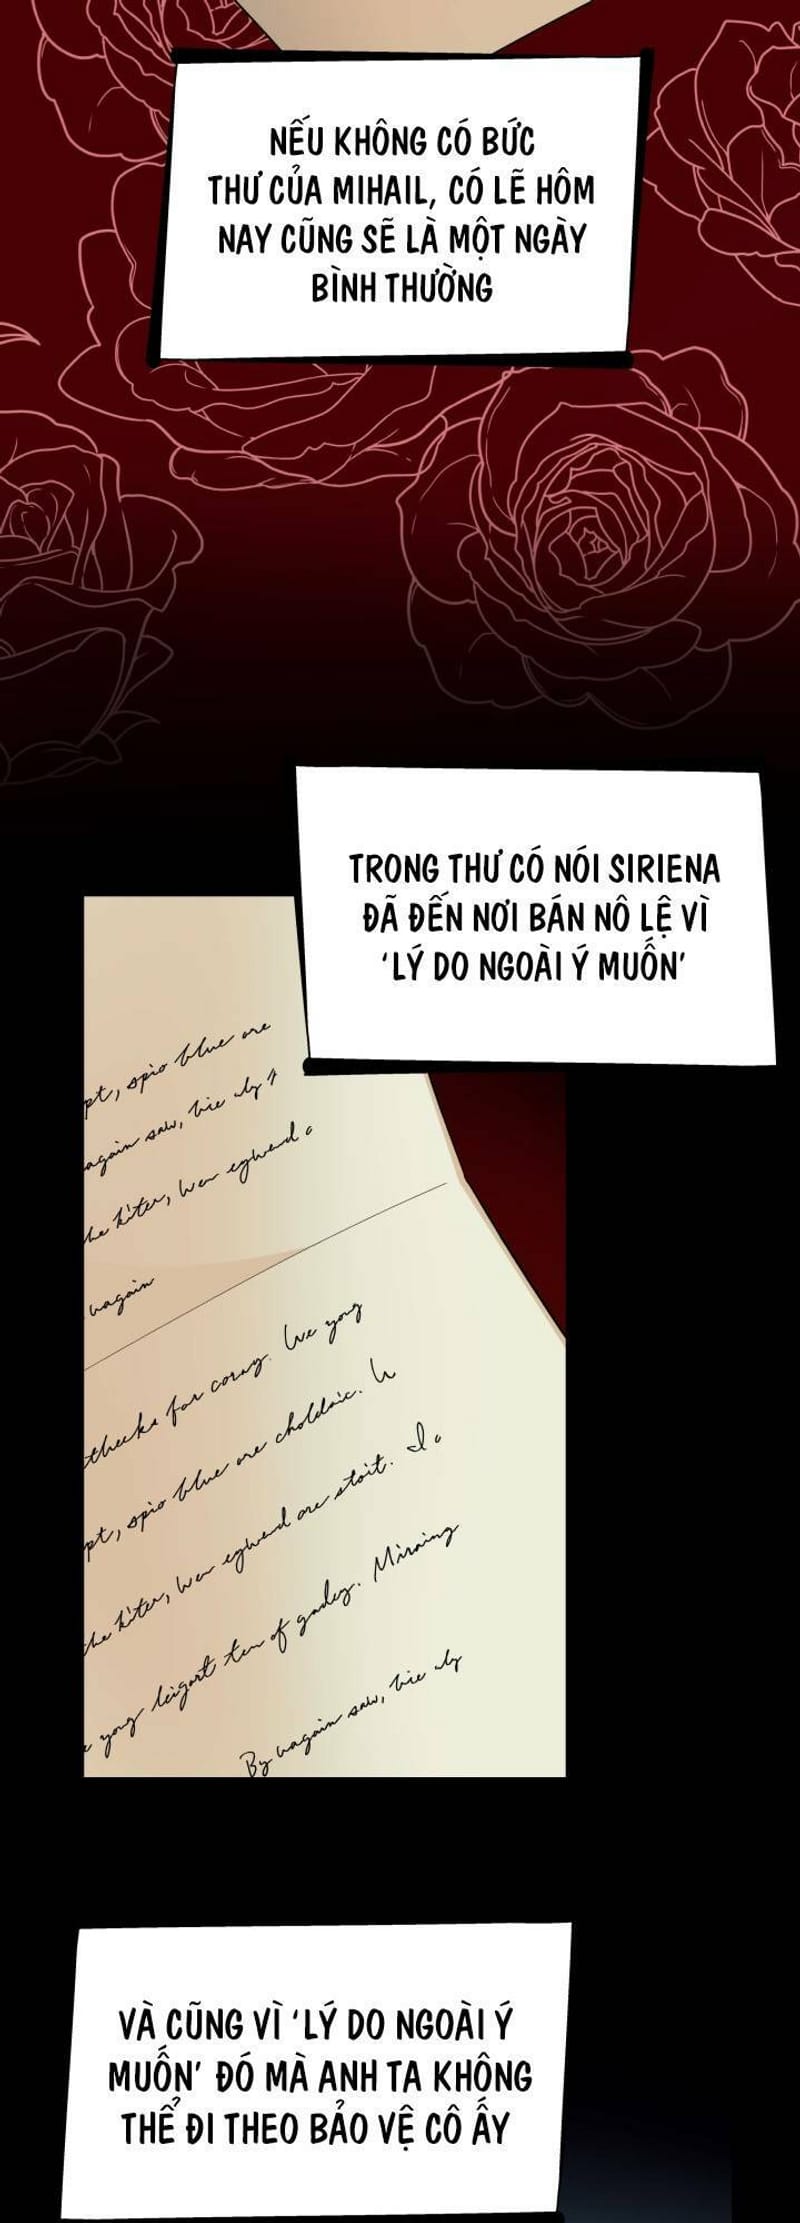 NẾU KHÔNG CÓ BỨC
THƯ CỦA MIHAIL, CÓ LẼ HÔM
NAY CŨNG SẼ LÀ MỘT NGÀY
BÌNH THƯỜNG
TRONG THƯ CÓ NÓI SIRIENA
ĐÃ ĐẾN NƠI BÁN NÔ LỆ VÌ
‘LÝ DO NGOÀI Ý MUỐN’
pt, spio blue are
again saw,
he kiter,
vagain
for corny. We yong
pt, spio blue are choldaic.
he kiter, are stoit. I
yong ten of
By vagain saw,
VÀ CŨNG VÌ ‘LÝ DO NGOÀI Ý
MUỐN’ ĐÓ MÀ ANH TA KHÔNG
THỂ ĐI THEO BẢO VỆ CÔ ẤY